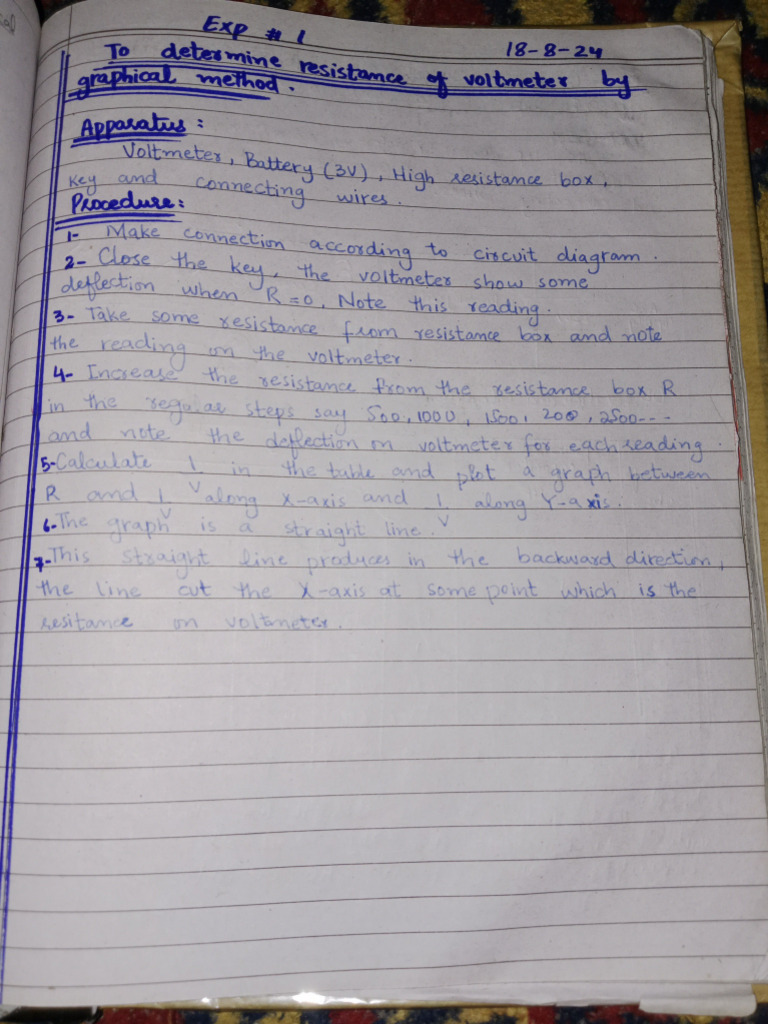 Exp # 1
18-8-24
To determine resistance of voltmeter by
graphical method.
Apparatus:
Voltmeter, Battery (3V), High resistance box,
Key and connecting wires.
Procedure:
1- Make connection according to circuit diagram.
2- Close the key, the voltmeter show some
deflection when R=0. Note this reading.
3- Take some resistance from resistance box and note
the reading on the voltmeter.
4- Increase the resistance from the resistance box R
in the regular steps say 500, 1000, 1500, 200, 2500---
and note the deflection on voltmeter for each reading.
5- Calculate 1/V in the table and plot a graph between
R and 1/V along X-axis and 1/V along Y-axis.
6- The graph is a straight line.
7- This straight line produces in the backward direction,
the line cut the X-axis at some point which is the
resitance on voltmeter.